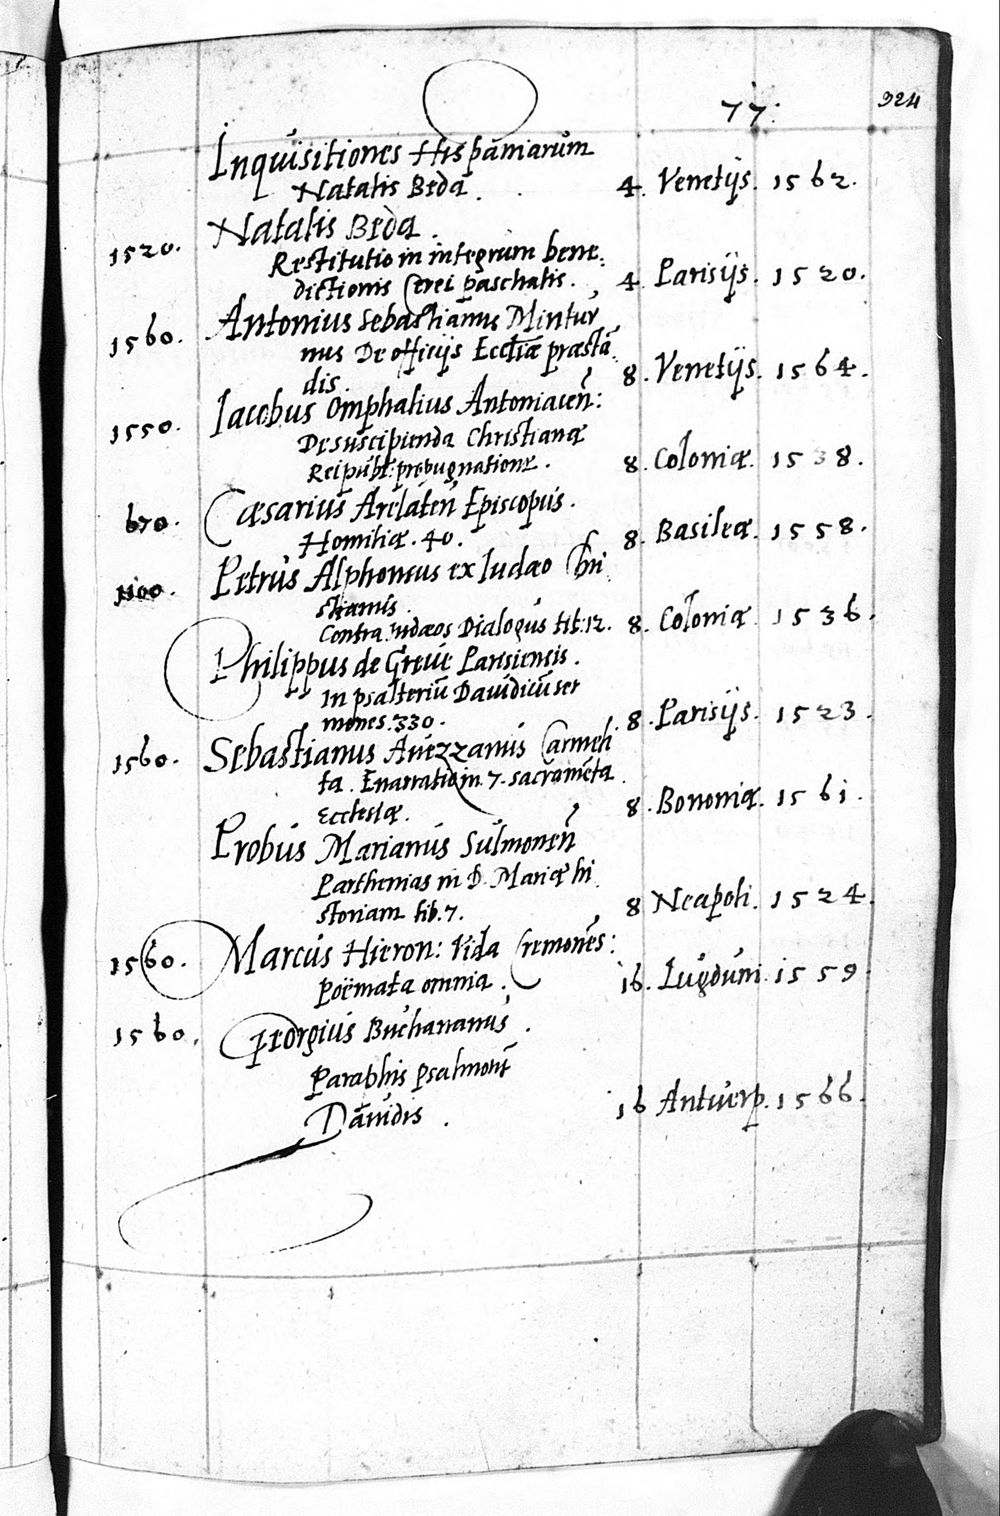 77.
924
Inquisitiones Hispaniarum
Natalis Beda . 4. Venetijs. 1562.
1520. Natalis Beda .
Restitutio in integrum bene,
dictionis Cerei paschalis . 4. Parisijs. 1520.
1560. Antonius Sebastianus Mintur
nus De officijs Eccliæ præstā
dis . 8. Venetijs. 1564.
1550. Iacobus Omphalius Antoniaceñ:
De suscipienda Christianæ
Reipubł: propugnatione . 8. Coloniæ. 1538.
670. Cæsarius Arelateñ Episcopus.
Homiliæ. 40. 8. Basileæ. 1558.
1100. Petrus Alphonsus ex Iudæo Chri
stianus .
Contra Iudæos Dialogus tit: 12. 8. Coloniæ. 1536.
Philippus de Greve Parisiensis .
In psalteriū Davidicū ser
mones. 330. 8. Parisijs. 1523.
1560. Sebastianus Avezzanus Carmeli
ta . Enarratio in 7. sacramēta
Ecclesiæ. 8. Bononiæ. 1561.
Probus Marianus Sulmoneñ
Parthenias in D. Mariæ hi
storiam lib. 7. 8 Neapoli. 1524.
1560. Marcus Hieron: Vida Cremones:
Poëmata omnia . 16. Lugduni. 1559.
1560. Georgius Buchananus .
Paraphis psalmorū
Davidis . 16 Antverp. 1566.